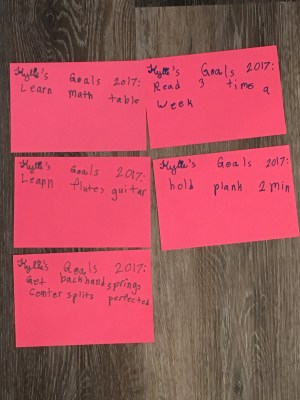 Kylle's Goals 2017:
Learn math table
Kylle's Goals 2017:
Read 3 times a
week
Kylle's Goals 2017:
Leapn flutes guitar
Kylle's Goals 2017:
hold plank 2 min
Kylle's Goals 2017:
Get backhandsprings
Center splits perfected